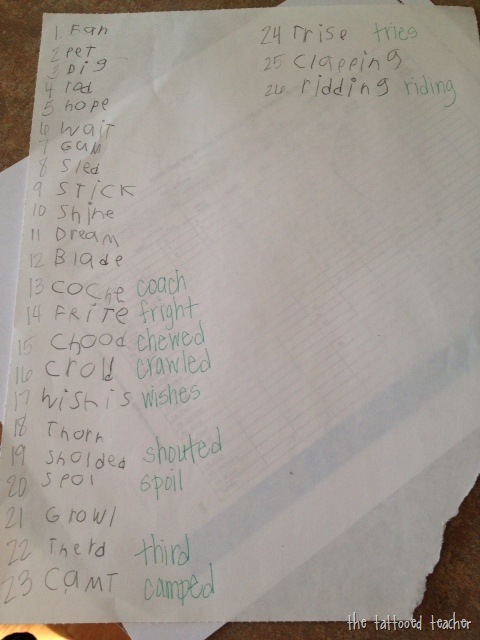 1. Fan
2 Pet
3 Dig
4 rod
5 hope
6 wait
7 Gum
8 Sled
9 STICK
10 Shine
11 Dream
12 Blade
13 coche coach
14 FRITE fright
15 Chood chewed
16 crold crawled
17 Wishis wishes
18 Thorn
19 Sholded shouted
20 Spol spoil
21 Growl
22 Therd third
23 CAMT camped
24 Trise tries
25 Clapping
26 ridding riding
the tattooed teacher